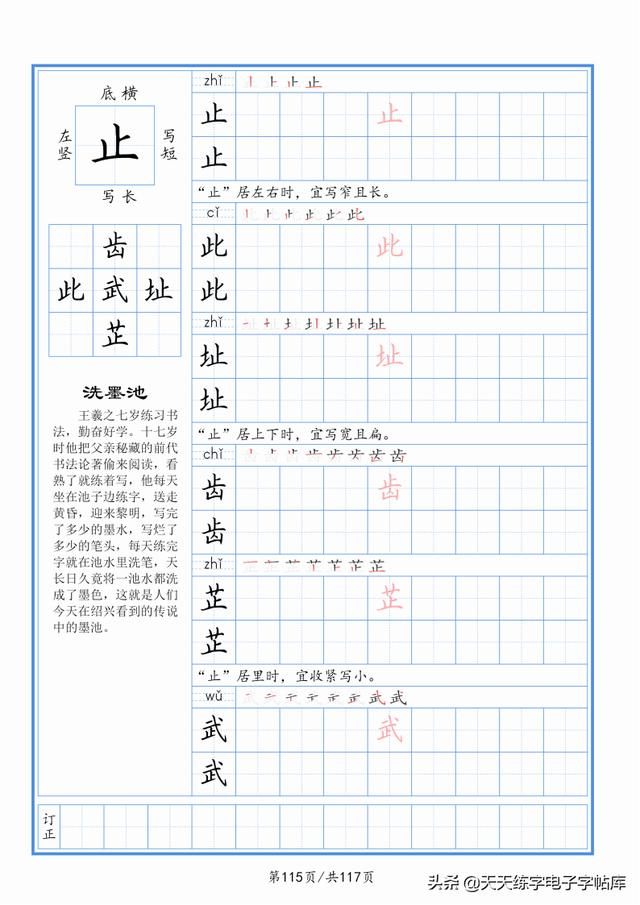 底横
左竖
止
写短
写长
齿
此 武 址
芷
洗墨池
王羲之七岁练习书
法，勤奋好学。十七岁
时他把父亲秘藏的前代
书法论著偷来阅读，看
熟了就练着写，他每天
坐在池子边练字，送走
黄昏，迎来黎明，写完
了多少的墨水，写烂了
多少的笔头，每天练完
字就在池水里洗笔，天
长日久竟将一池水都洗
成了墨色，这就是人们
今天在绍兴看到的传说
中的墨池。
zhǐ
止 止
止
“止”居左右时，宜写窄且长。
cǐ
此 此
此
zhǐ
址 址
址
“止”居上下时，宜写宽且扁。
chǐ
齿 齿
齿
zhǐ
芷 芷
芷
“止”居里时，宜收紧写小。
wǔ
武 武
武
订正
第115页/共117页
头条 @天天练字电子字帖库